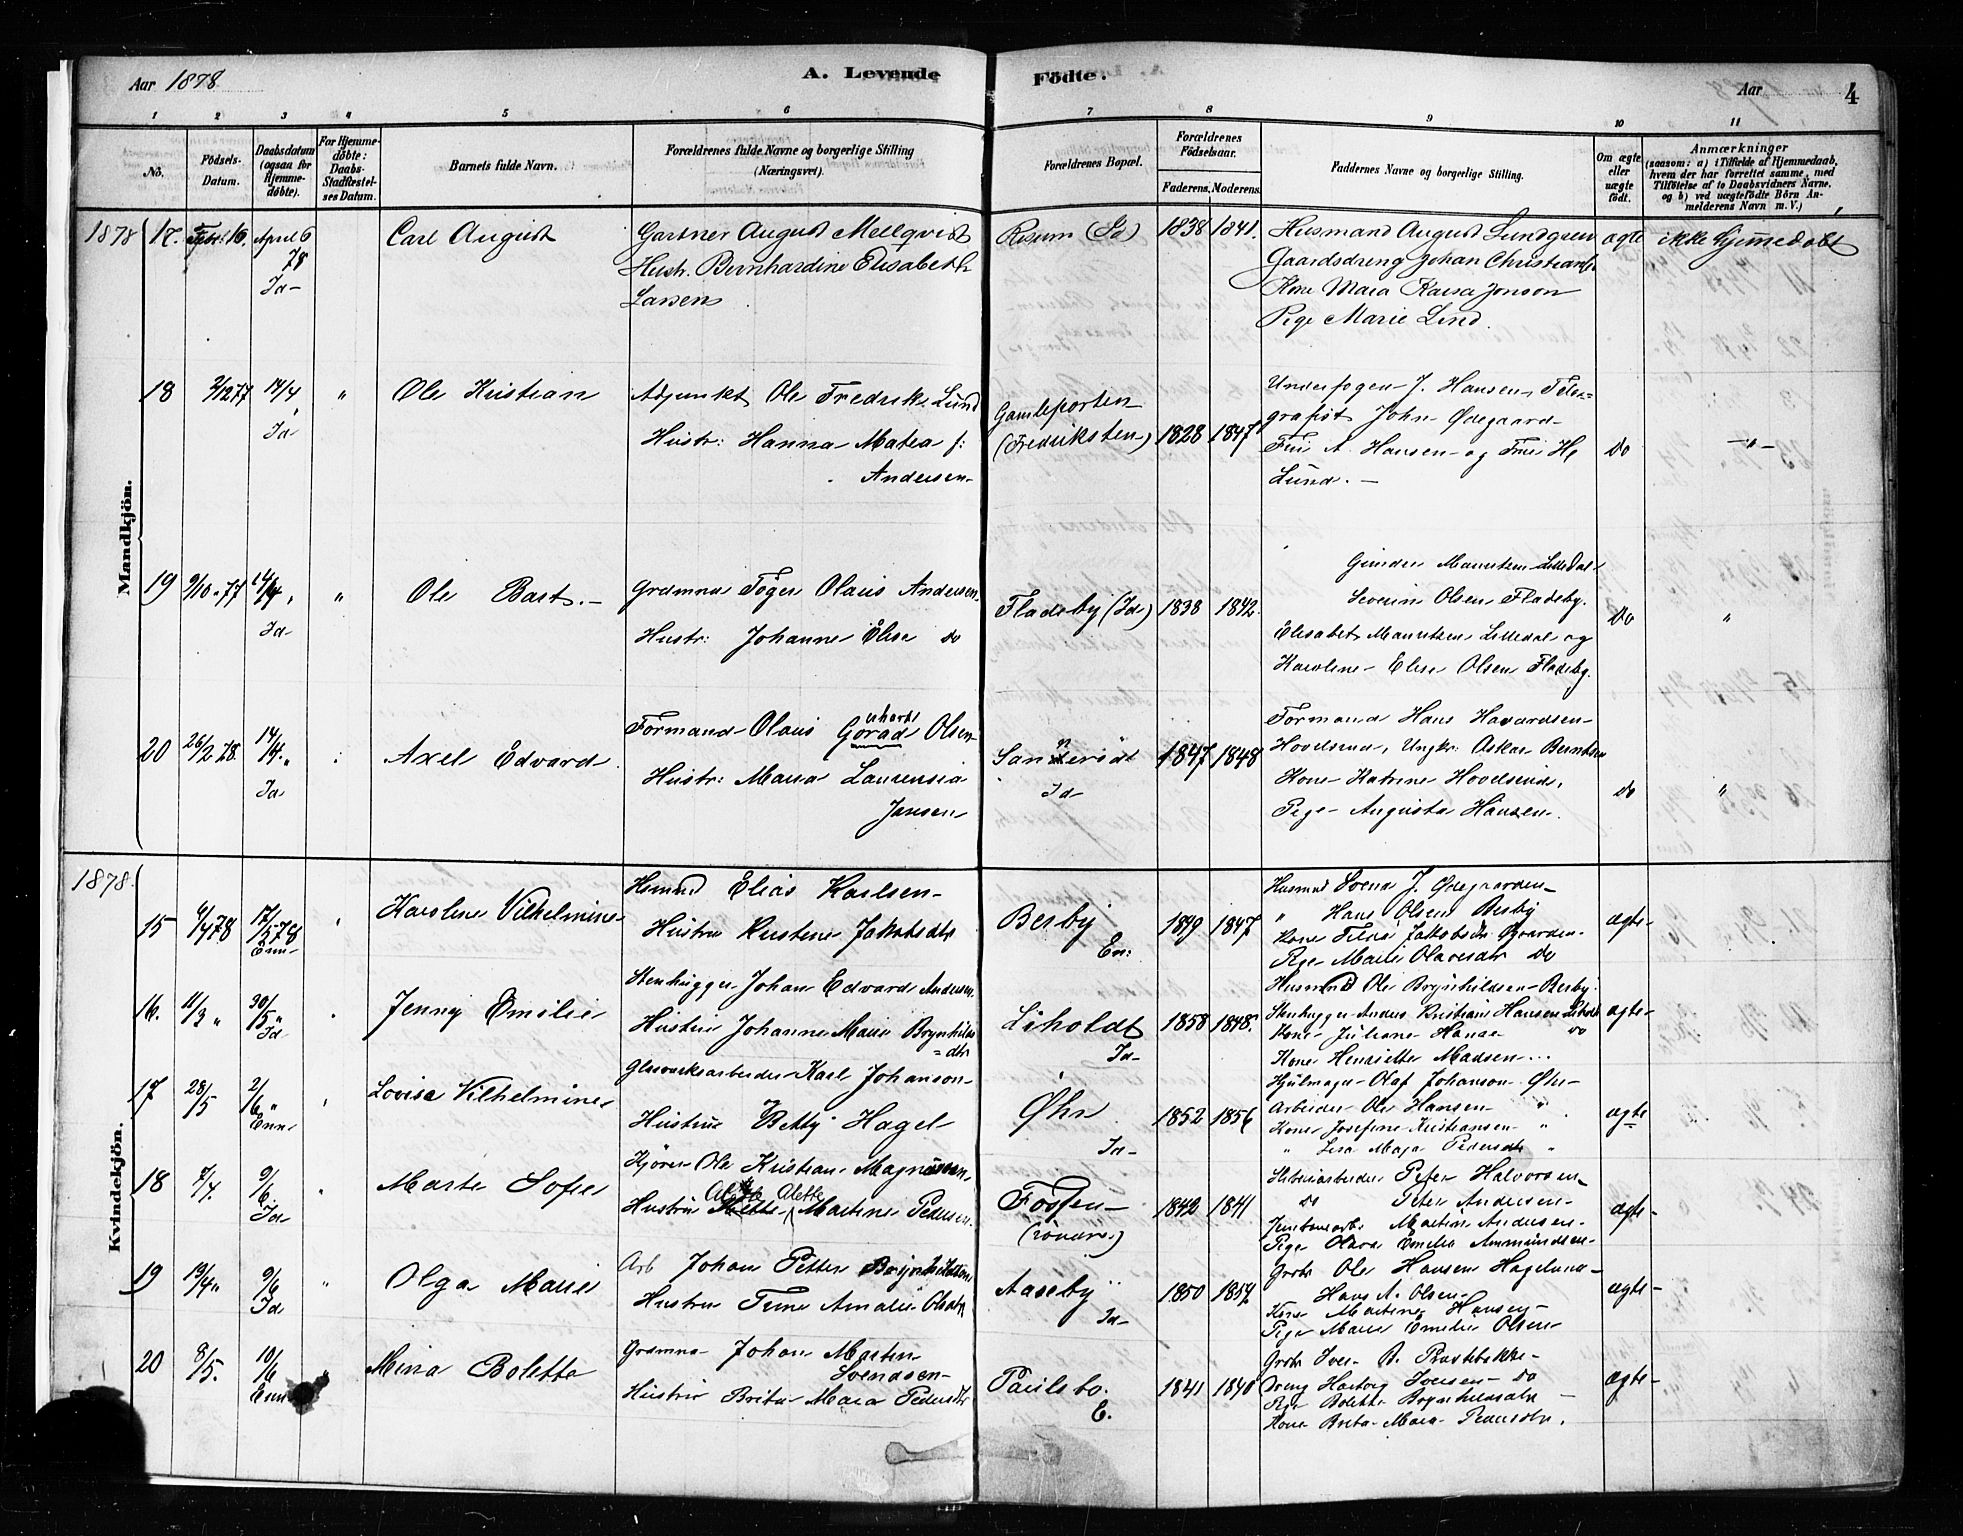 Aar 1878
A. Levende
Födte.
Aar
4
1 2 3 4 5 6 7 8 9 10 11
No.
Födsels-Datum.
Daabsdatum (ogsaa for Hjemme-döbte).
For Hjemme-döbte: Daabs-Stadfæstel-ses Datum.
Barnets fulde Navn.
Forældrenes fulde Navne og borgerlige Stilling (Næringsvei).
Forældrenes Bopæl.
Forældrenes Födselsaar.
Faderens. Moderens.
Faddernes Navne og borgerlige Stilling.
Om ægte eller uægte födt.
Anmærkninger
(saasom: a) i Tilfælde af Hjemmedaab, hvem der har forrettet samme, med Tilföielse af to Daabsvidners Navne, og b) ved uægtefödte Börn An-melderens Navn m. V.)
Mandkjön.
1878 17. Febr 16. April 6 78 Id
Carl August
Gartner August Mellqvist
Hustr. Bernhardine Elisabeth
Larsen
Risum (Id) 1838 1841.
Husmand August Lundgren
Gaardsdreng Johan Christian
Kone Maria Kaisa Jonson
Pige Marie Lind.
ægte ikke hjemedøbt
18 2/12 77 14/4 Id "
Ole Kristian
Adjunkt Ole Fredrik Lund
Hustr: Hanna Matea f:
Andersen
Gamleporten
(Fredriksten) 1828 1847
Underfogen J. Hansen, Tele=
grafist John Ødegaard
Fru A. Hansen og Fru H
Lund. —
Do —"—
19 9/10 77 14/4 Id "
Ole Bast. —
Grdmnd Töger Olaus Andersen
Hustr: Johanne Elise do
Fladeby (Id) 1838 1842.
Gunder Mauritzen Lilledal
Severin Olsen Fladeby.
Elisabet Mauritzen Lilledal og
Karoline Elise Olsen Fladeby.
Do "
20 26/2 78. 14/4 Id
Axel Edvard
Formand Olaus Olsen
Hustr: Maria Laurensia
Jansen
Sanneröd
Id 1847 1848
Formand Hans Havardsen
Hovelsrud, Ungkr: Oskar Berntsen
Kone Katrine Hovelsrud,
Pige Augusta Hansen.
Do "
Kvindekjön.
1878.
15 6/4 78 17/5 78 Enn "
Karoline Vilhelmine
Hsmnd Elias Karlsen
Hustru Kristene Jakobsdtr
Berby
En: 1849 1847
Husmnd Svend J. Ødegaarden
" Hans Olsen Berby
Pige Marie Olavesdtr Do
ægte
16. 11/3 " 30/5 " Id
Jenny Emilie
Stenhugger Johan Edvard Andersen
Hustru Johanne Marie Brynhilds
=dtr
Liholdt
Id 1858 1848.
Husmnd Ole Brynhildsen Berby.
Stenhugger Anders Kristian Hansen Liholdt
Kone Juliane Hanse do
Kone Henriette Madsen ...
ægte
17 28/5 2/6 " Enn "
Lovise Vilhelmine
Glasværksarbeider Karl Johanson
Hustru Betty Hagel
Øhr
Id 1852 1856
Hjulmager Olaf Johanson Øhr
Arbeider Ole Hansen "
Kone Josefine Kristiansen "
" Lisa Maja Pedersdtr "
ægte
18 7/4. 9/6. Id "
Marte Sofie
Kjörer Ole Kristian Magnussen
Alette
Hustru Martine Pedersen
Fossen
1842 1841
Sliberiarbeider Peter Halvorsen
do Peter Andersen
Martin Andersen
Pige Olava Emelie Ammundsen
ægte
19 19/4 " 9/6 Id "
Olga Marie
Arb Johan Petter Brynhildsen
Hustru Trine Amalie Olsdtr
Aaseby
Id 1850 1854
Grdbr Ole Hansen Hagelund
Hans A. Olsen
Kone Martine Hansen
Pige Marie Emelie Olsen
ægte
20 8/5. 10/6 Enn "
Mina Bolette
Grdmnd Johan Martin
Svendsen
Hustru Brita Maria Pedersdtr
Paulsbo.
E. 1841 1840
Grdbr Iver B. Rustebakke
Dreng Hartvig Iversen Do
Pige Bolette Brynhildsdtr —
Kone Brita Maria Pedersdtr.
ægte